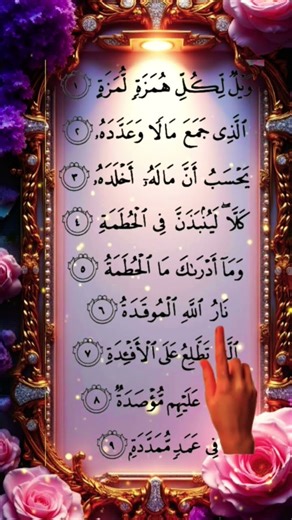 وَيْلٌ لِّكُلِّ هُمَزَةٍ لُّمَزَةٍ ١
ٱلَّذِى جَمَعَ مَالًا وَعَدَّدَهُۥ ٢
يَحْسَبُ أَنَّ مَالَهُۥٓ أَخْلَدَهُۥ ٣
كَلَّا ۖ لَيُنۢبَذَنَّ فِى ٱلْحُطَمَةِ ٤
وَمَآ أَدْرَىٰكَ مَا ٱلْحُطَمَةُ ٥
نَارُ ٱللَّهِ ٱلْمُوقَدَةُ ٦
تَطَّلِعُ عَلَى ٱلْأَفْـِٔدَةِ ٧
عَلَيْهِم مُّؤْصَدَةٌ ٨
فِى عَمَدٍ مُّمَدَّدَةٍۭ ٩